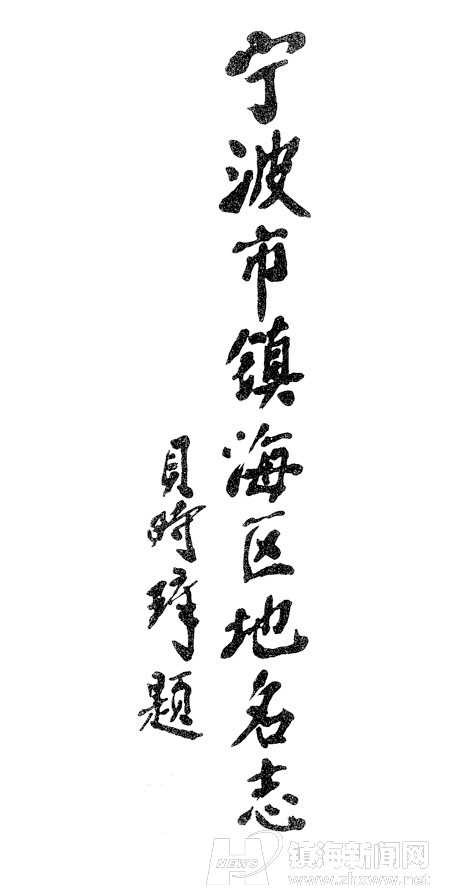 宁波市镇海区地名志
貝時璋題
NEWS
镇海新闻网
www.zhxww.net